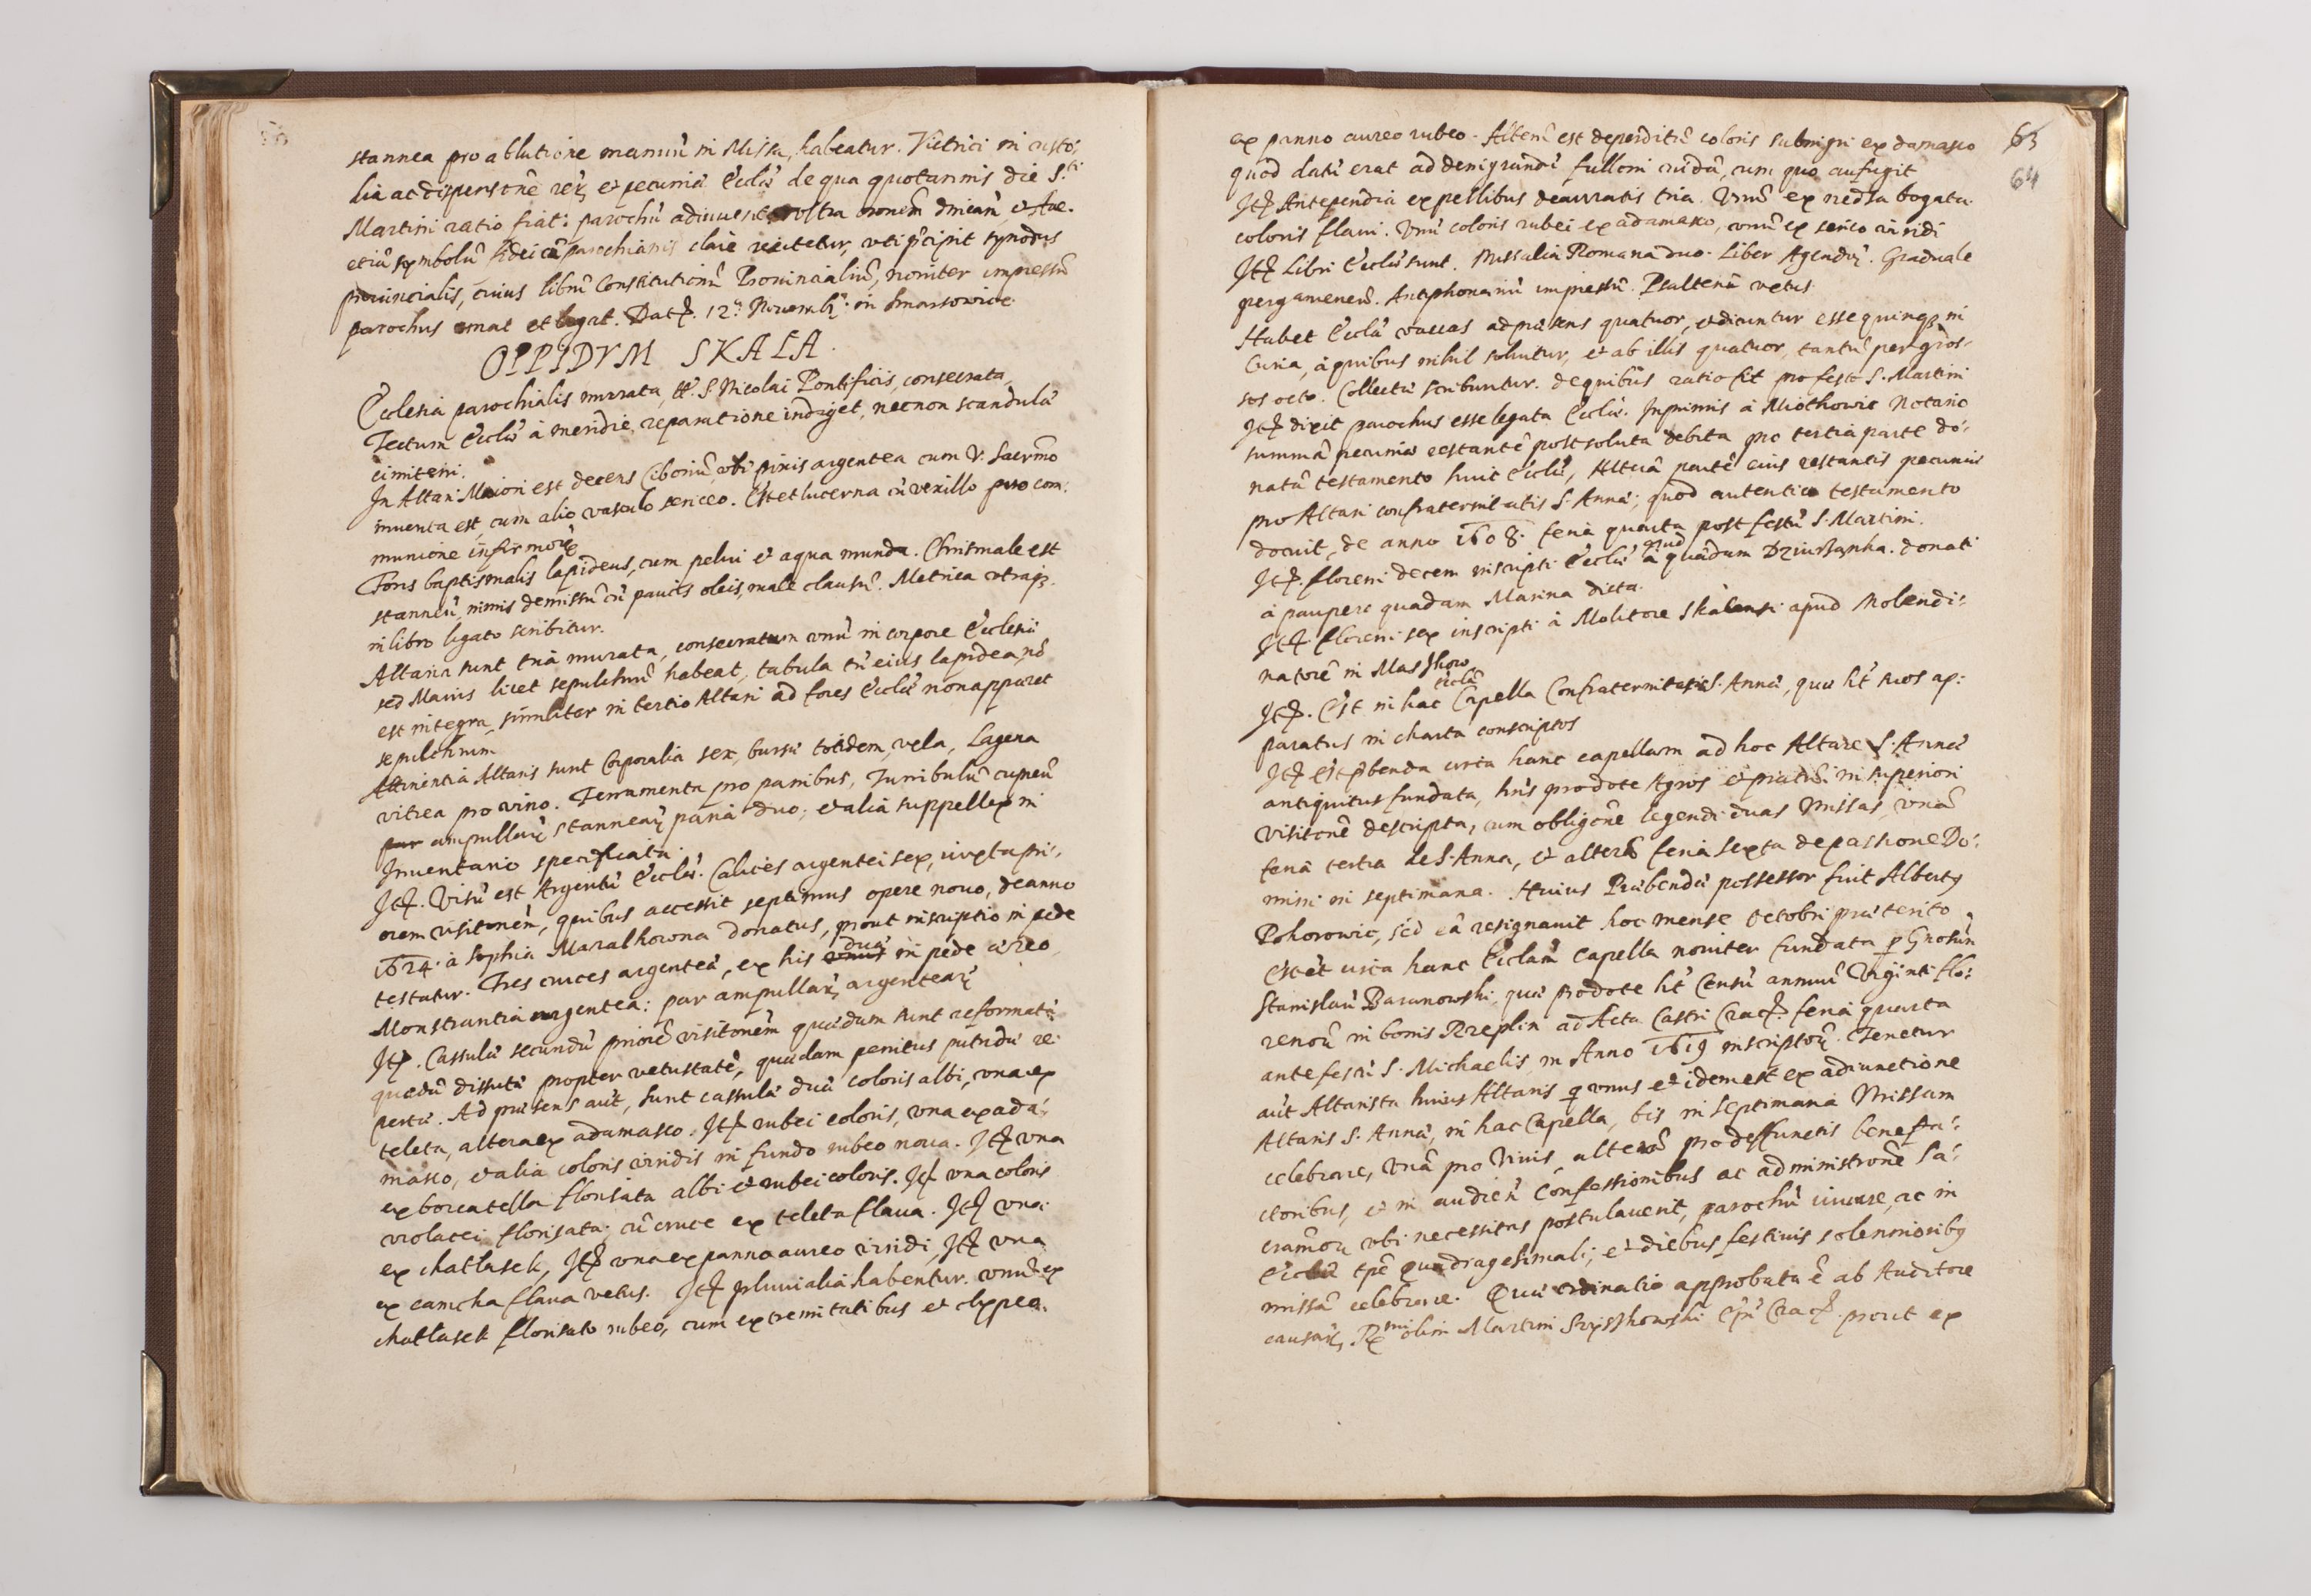 stannea pro ablutione manuū in Missa, habeatur. Vitrici in custo:
dia ac dispensōne rerū et pecuniæ Eccliæ de qua quotannis die S.ti
Martini ratio fiat: parochū adiuuent ultra oronem dnicam et Aue.
etiā symbolū fidei cū parochianis clare recitetur, uti pcipit synodus
prouincialis, cuius librū Constitutionū Prouincialiū, nouiter impressū
parochus emat et legat. Dat. 12. Nouemb. in Smarsowice
OPPIDVM SKALA.
Ecclesia parochialis murata, tt. S. Nicolai Pontificis, consecrata,
Tectum Eccliæ à meridie, reparatione indiget, necnon scandula
cimiterii.
In Altari Maiori est decens Ciboriū, ubi pixis argentea cum V. Sacrmo
inuenta est, cum alio vasculo sericeo. Est et lucerna cū vexillo pro com:
munione infirmorū
Fons baptismalis lapideus, cum pelui et aqua munda. Chrismale est
stanneū, nimis demissū cū paucis oleis, male clausū. Metrica utraqȝ
in libro ligato scribitur.
Altaria sunt tria murata, consecratum unū in corpore Ecclesiæ
sed Maius licet sepulchrū habeat, tabula tñ eius lapidea, nō
est integra, similiter in tertio Altari ad fores Eccliæ non apparet
sepulchrum
Attinentia Altaris sunt Corporalia sex, bursæ totidem, vela, Lagena
vitrea pro vino. Ferramenta pro panibus, Turribulū cupreū
par ampullarū stannearū paria duo; et alia suppellex in
Inuentario specificata.
Itē. Visū est Argentū Eccliæ. Calices argentei sex, iuxta pri:
orem visitonem, quibus accessit septimus opere nouo, de anno
1624. à Sophia Maralhowna donatus, prout inscriptio in pede
testatur. Tres cruces argenteæ, ex his unus duæ in pede æreo
Monstrantia argentea: par ampullarū argentearū
Itē. Cassulæ secundū priorē visitonem quædam sunt reformatæ
quædā dissutæ propter vetustatē, quædam penitus putridæ re:
pertæ. Ad præsens aut, sunt cassulæ duæ coloris albi, una ex
teleta, altera ex adamasco. Itē rubei coloris, una ex ada:
masco, et alia coloris viridis in fundo rubeo noua. Itē una
ex boreatella florisata albi et rubei coloris. Itē una coloris
violacei florisata, cū cruce ex teleta flaua. Itē una
ex chatłasek, Itē una ex panno aureo viridi, Itē una
ex camcha flaua vetus. Itē pluuialia habentur. unū ex
chatłasek florisato rubeo, cum extremitatibus et clypeo
63
64
ex panno aureo rubeo. Alterū est deperditū coloris subnigri ex damasco
quod datū erat ad denigrandū fulloni cuidā, cum quo aufugit
Itē Antependia ex pellibus deauratis tria. Unū ex nedza bogata
coloris flaui. Unū coloris rubei ex adamasco, unū ex serico viridi
Itē Libri Eccliæ sunt. Missalia Romana duo. Liber Agendorū. Graduale
pergameneū. Antiphonariū impressū. Psalteriū vetus.
Habet Ecclā vaccas ad præsens quatuor, et dicuntur esse quinqȝ in
Curia, à quibus nihil soluitur, et ab illis quatuor, tantū per gros:
sos octo. Collecta scribuntur. de quibus ratio fit pro festo S. Martini
Itē dixit parochus esse legata Eccliæ. Inprimis à Miothowic Notario
summā pecuniæ restantē post soluta debita pro tertia parte do:
natā testamento huic Eccliæ, Alterā partē eius restantis pecuniæ
pro Altari confraternitatis S. Annæ; quod autentico testamento
docuit, de anno 1608. feria quarta post festū S. Martini.
Itē. floreni decem inscripti Eccliæ apud quādam Dziurzanka. donati
à paupere quadam Marina dicta.
Itē. floreni sex inscripti à Molitore Skalensi apud Molendi:
natorē in Maszkow
Itē. Est in hac Ecclā Capella Confraternitatis S. Annæ, quæ ht suos ap:
paratus in charta conscriptos
Itē Est pbenda circa hanc capellam ad hoc Altare S. Annæ
antiquitus fundata, his pro dote Agros et pratū in superiori
visitonē descripta, cum obligōne legendi duas Missas, unā
feria tertia de S. Anna, et alterā feria sexta de passione Do:
mini in septimana. Huius Præbendæ possessor fuit Albertꝰ
Pohorowic, sed eā resignauit hoc mense Octobri præterito
Est et circa hanc Eccliam Capella nouiter fundata p Gnosūm
Stanislaū Baranowski, quæ pro dote ht Censū annuū Viginti flo:
renorū in bonis Przeplin ad Acta Castri Crac. feria quarta
ante festū S. Michaelis, in Anno 1619 inscriptorū. Tenetur
aūt Altarista huius Altaris q unus et idem est ex adiunctione
Altaris S. Annæ, in hac Capella, bis in septimana Missam
celebrare, unā pro viuis, alterā pro deffunctis benefa:
ctoribus, et in audien Confessionibus ac administrōne Sa:
cramōrū ubi necessitas postulauerit, parochū iuuare, ac in
Ecclia tpē quadragesimali, et diebus festiuis solennioribꝰ
missā celebrare. Quæ ordinatio approbata ē ab Auditore
causarū, Rmi olim Martini Szyszkowski Epi Crac. prout ex